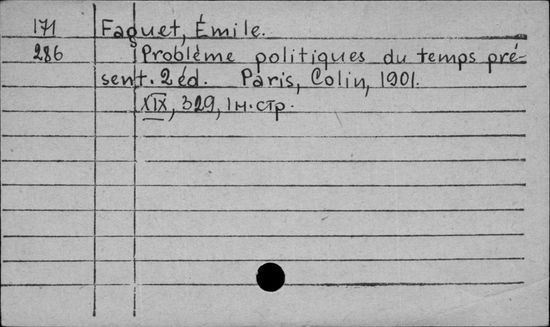 171 Faguet, Émile.
286 Problème politiques du temps pré-
sent. 2 éd. Paris, Colin, 1901.
XIX, 329, 1 н. стр.